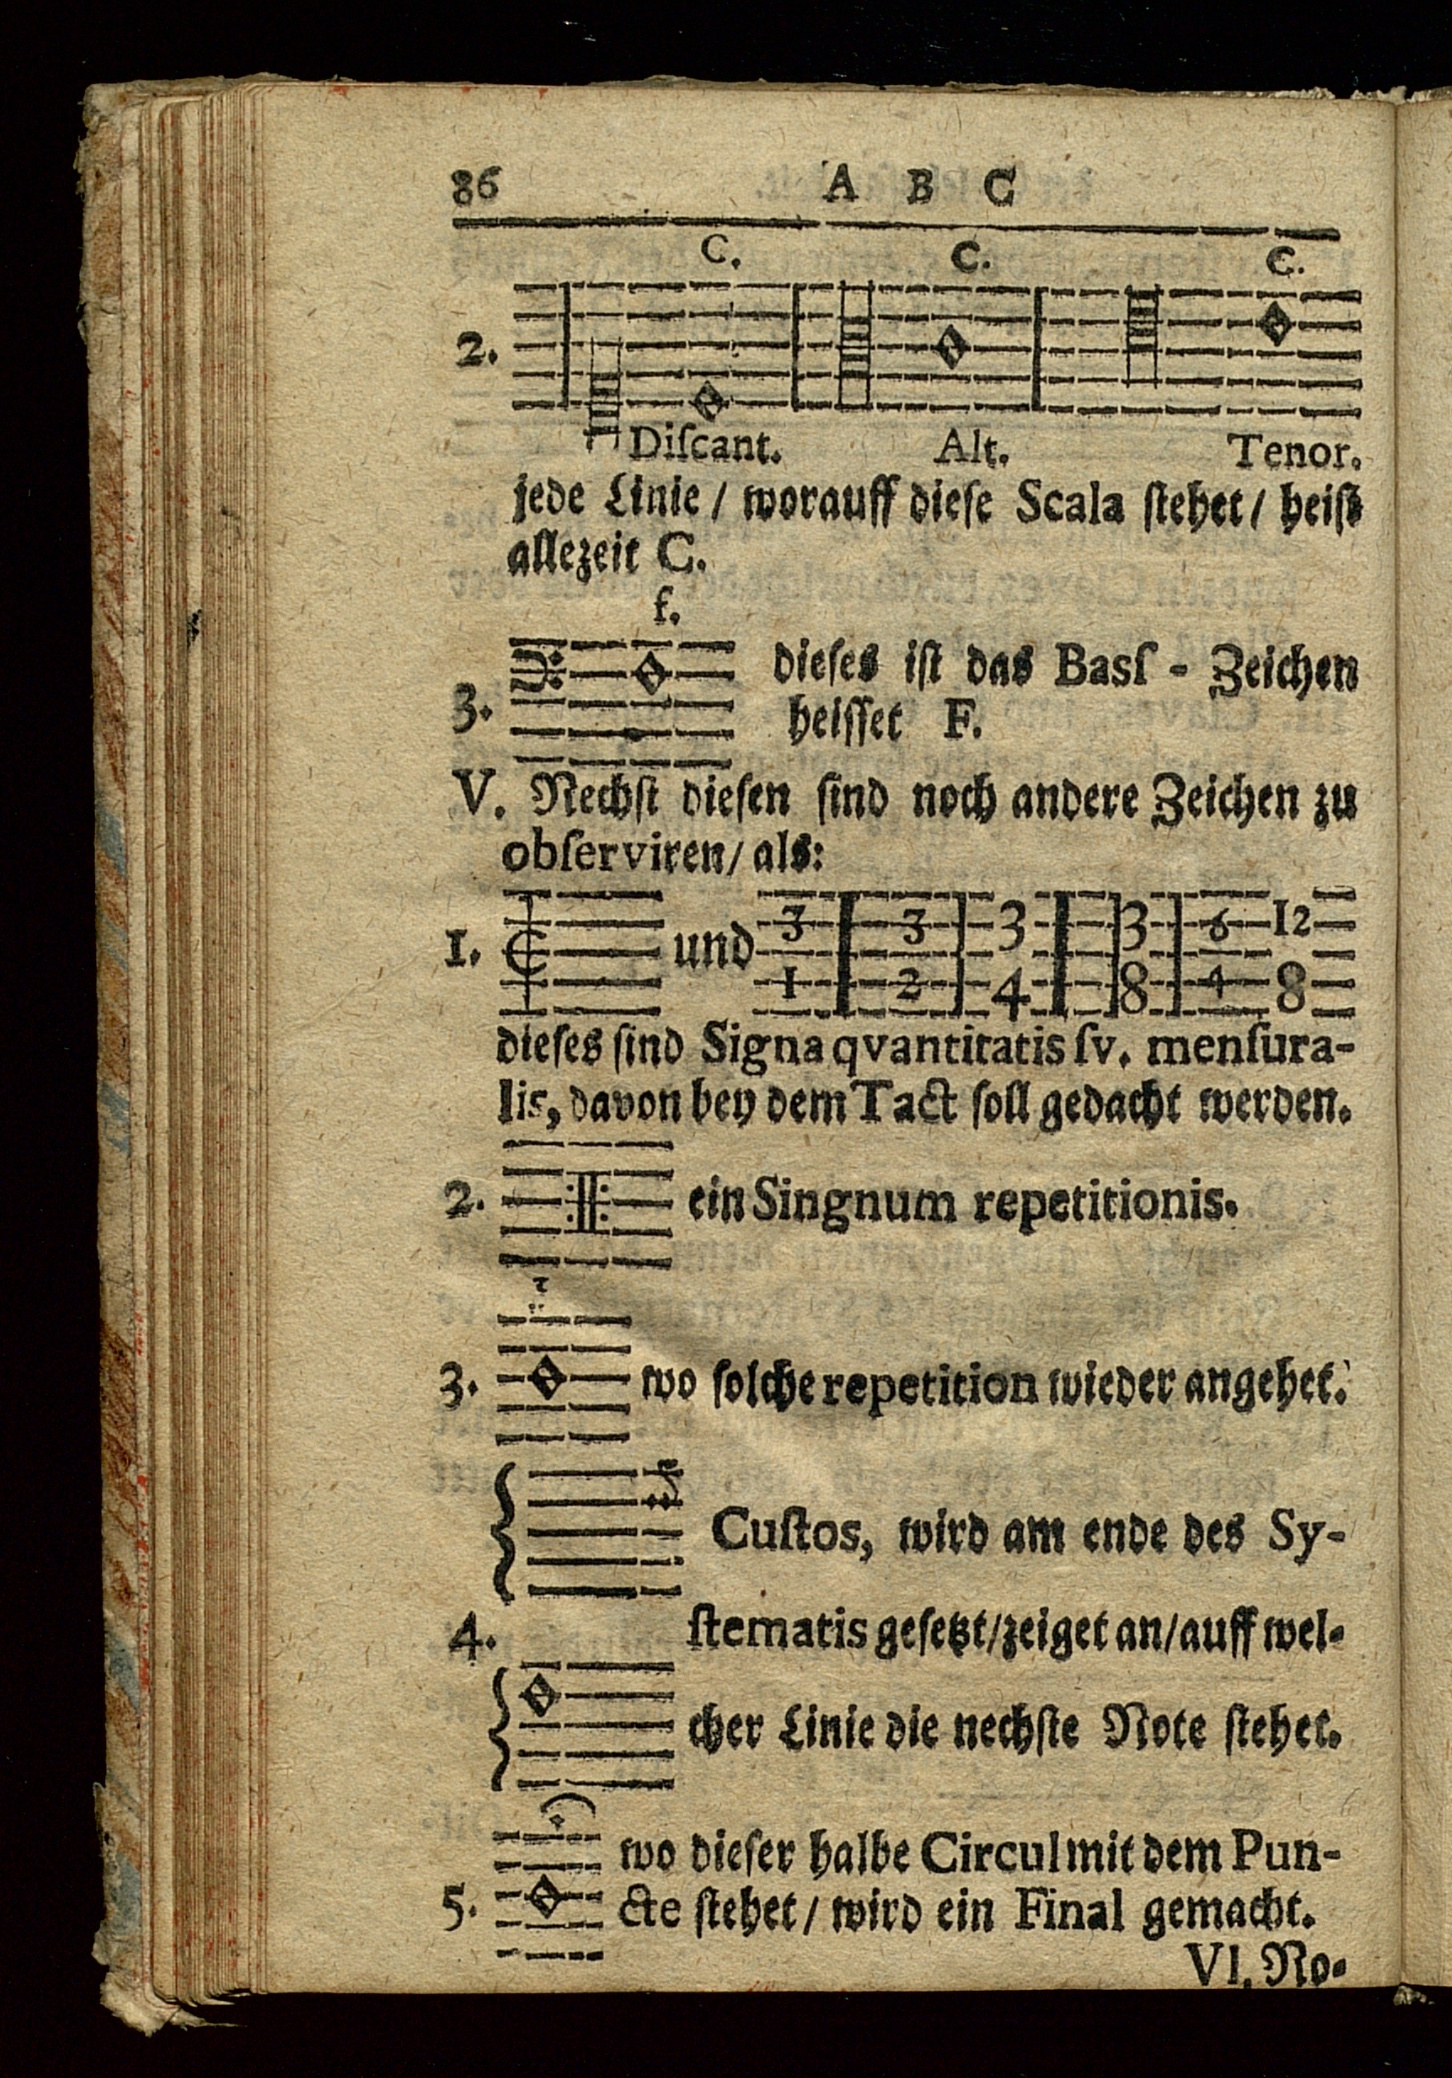 86 A B C
C. C. C.
2.
Diſcant. Alt. Tenor.
jede Linie / worauff dieſe Scala ſtehet / heiſt
allezeit C.
f.
3. dieſes iſt das Basſ - Zeichen
heiſſet F.
V. Nechſt dieſen ſind noch andere Zeichen zu
obſerviren / als:
1. C und 3 3 3 3 6 12
1 2 4 8 4 8
dieſes ſind Signa qvantitatis ſv. menſura-
lis, davon bey dem Tact ſoll gedacht werden.
2. ein Singnum repetitionis.
3. wo ſolche repetition wieder angehet.
Cuſtos, wird am ende des Sy-
4. ſtematis geſetzt / zeiget an / auff wel-
cher Linie die nechſte Note ſtehet.
wo dieſer halbe Circul mit dem Pun-
5. cte ſtehet / wird ein Final gemacht.
VI. No-